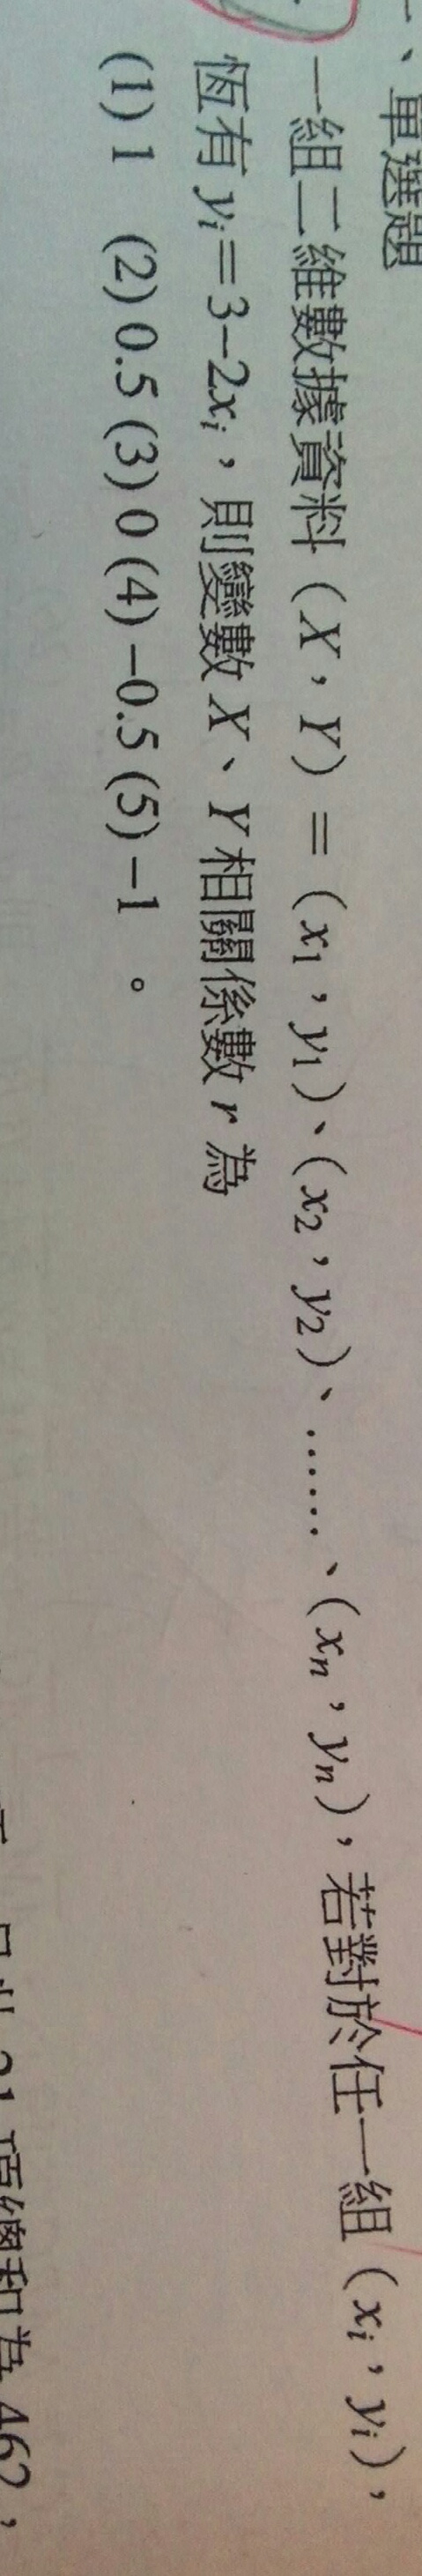 一、單選題
一組二維數據資料（X，Y）＝（x₁，y₁）、（x₂，y₂）、……、（xₙ，yₙ），若對於任一組（xᵢ，yᵢ），
恆有 yᵢ=3−2xᵢ，則變數 X、Y 相關係數 r 為
(1) 1 (2) 0.5 (3) 0 (4) −0.5 (5) −1 。
項總和為 462，